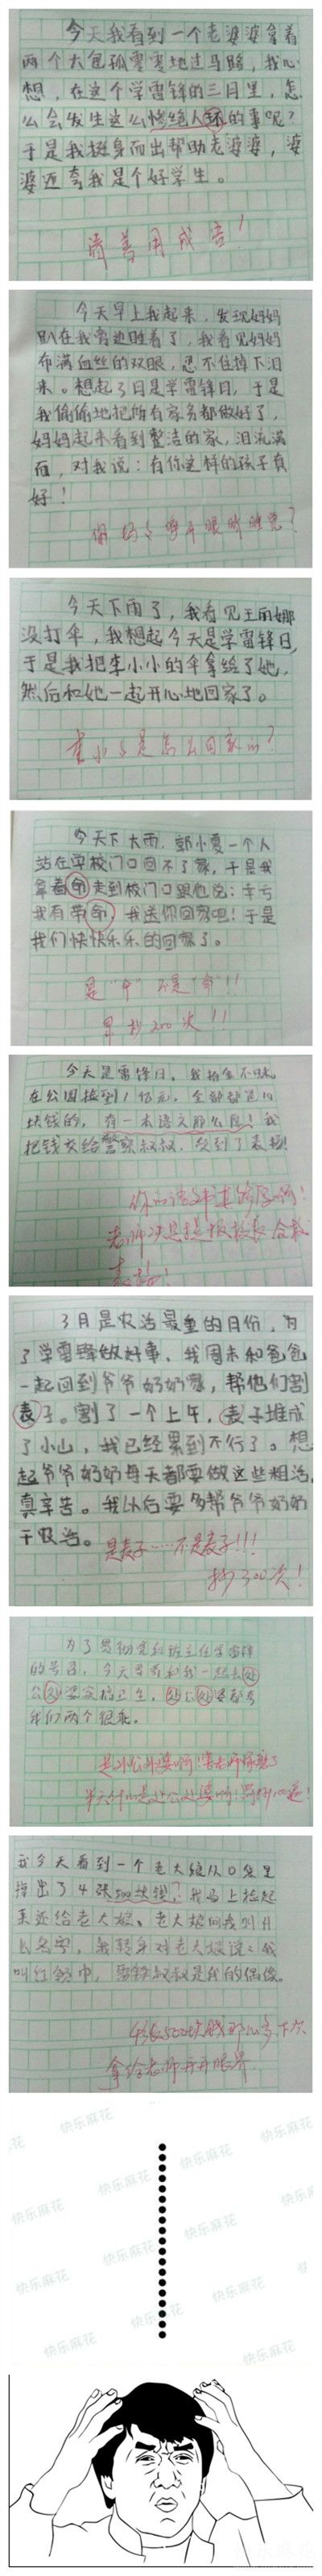 今天我看到一个老婆婆拿着
两个大包孤零零地过马路，我心
想，在这个学雷锋的三月里，怎
么会发生这么惨绝人怀的事呢？
于是我挺身而出帮助老婆婆，婆
婆还夸我是个好学生。
请善用成语！
今天早上我起来，发现妈妈
趴在我旁边睡着了，我看见妈妈
布满血丝的双眼，忍不住掉下泪
来。想起3月是学雷锋月，于是
我偷偷地把所有家务都做好了，
妈妈起来看到整洁的家，泪流满
面，对我说：有你这样的孩子真
好！
你妈妈睁开眼睛睡觉？
今天下雨了，我看见王丽娜
没打伞，我想起今天是学雷锋日，
于是我把李小小的伞拿给了她，
然后和她一起开心地回家了。
李小小是怎么回家的？
今天下大雨，郭小夏一个人
站在学校门口回不了家，于是我
拿着命走到校门口跟他说：幸亏
我有带命，我送你回家吧！于是
我们快快乐乐的回家了。
是“伞”不是“命”！！
罚抄200次！！
今天是雷锋日，我拾金不昧，
在公园捡到1亿元，全部都是10
块钱的，有一本语文那么厚！我
把钱交给警察叔叔，受到了表扬！
你的语文书真够厚啊！
3月是农活最重的月份，为
了学雷锋做好事，我周末和爸爸
一起回到爷爷奶奶家，帮他们割
表子。割了一个上午，表子堆成
了小山，我已经累到不行了。想
起爷爷奶奶每天都要做这些粗活，
真辛苦。我以后要多帮爷爷奶奶
干农活。
是麦子……不是表子！！！
抄300次！
的号召，今天哥哥和我一起去处
公处婆家搞卫生，处公处婆都夸
我们两个很乖。
是外公外婆啊！害老师猜想了
半天什么是处公处婆啊！罚抄100遍！
我今天看到一个老大娘从口袋里
掉出了4张500块钱？我马上捡起
来还给老大娘。老大娘问我叫什
么名字，我转身对老大娘说：我
叫红领巾，雷锋叔叔是我的偶像。
4张500块钱那么多，下次
拿给老师开开眼界
快乐麻花
快乐麻花
快乐麻花
快乐麻花
快乐麻花
快乐麻花
快乐麻花